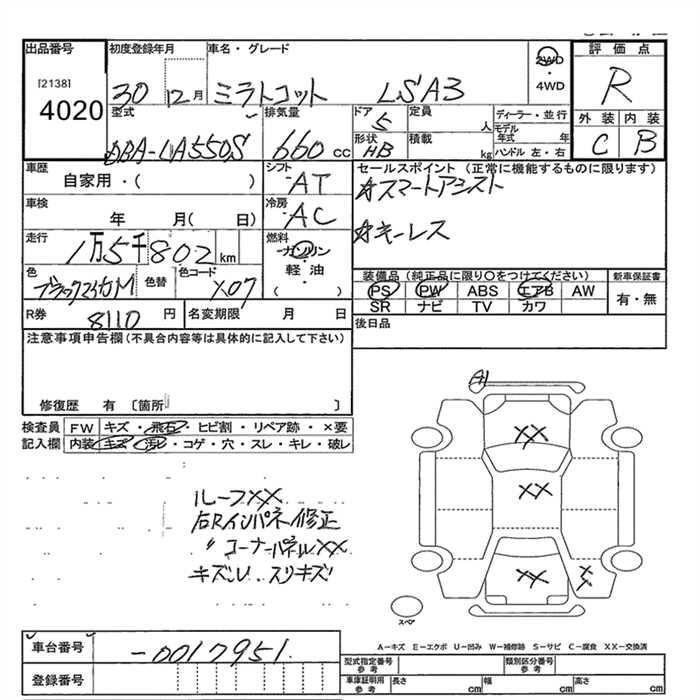 出品番号 初度登録年月 車名・グレード 2WD・4WD 評価点
[2138] 4020 30 12月 ミラトコット LSA3 R
型式 排気量 ドア 定員 ディーラー・並行 外装 内装
DBA-LA550S 660cc 5 人 モデル年式 年 C B
形状 積載 ハンドル 左・右
HB kg
車歴 シフト セールスポイント(正常に機能するものに限ります)
自家用・( ) AT ☆スマートアシスト
車検 冷房
年 月( 日) AC ☆キーレス
走行 燃料
1万5千802km ガソリン・軽油・( )
色 色替 色コード 装備品(純正品に限り○をつけてください) 新車保証書
ブラックマイカM X07 PS PW ABS エアB AW 有・無
SR ナビ TV カワ
R券 8110円 名変期限 月 日 後日品
注意事項申告欄(不具合内容等は具体的に記入して下さい)
修復歴 有〔箇所 〕
検査員 FW キズ・飛石・ヒビ割・リペア跡・×要
記入欄 内装 キズ・汚レ・コゲ・穴・スレ・キレ・破レ
A1
XX
XX
XX
ルーフXX
右Rインパネ修正
〃 コーナーパネルXX
キズU、スリキズ
スペア
A-キズ E-エクボ U-凹み W-補修跡 S-サビ C-腐食 XX-交換済
車台番号 -0017951
登録番号
型式指定番号 参考 類別区分番号 参考
車庫証明用 参考 長さ cm 幅 cm 高さ cm